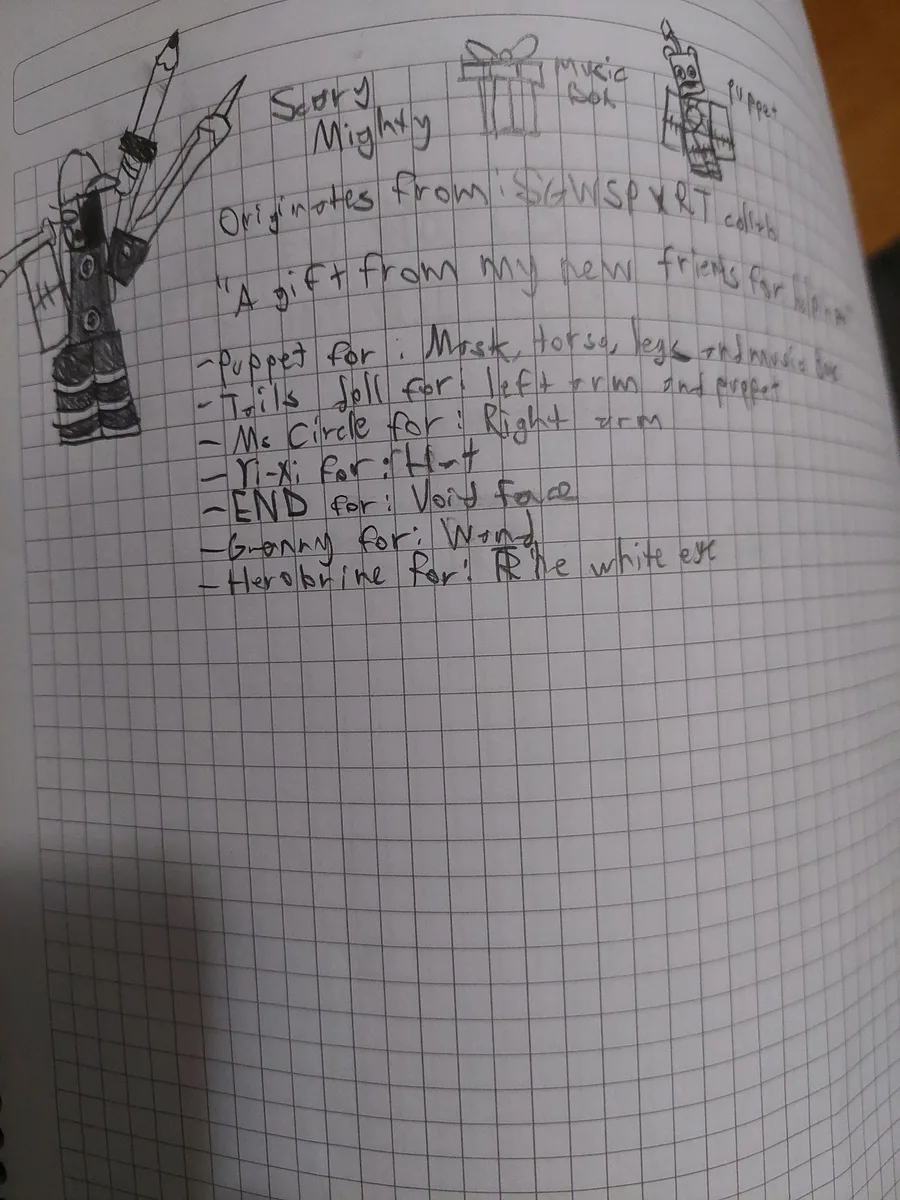 Scary
Mighty
music
box
puppet
Originates from: collab
"A gift from my new friends for
-Puppet for: Mask, torso, legs and music box
-Tails doll for: left arm and puppet
-Ms Circle for: Right arm
-Yi-xi for: Hat
-END for: Void face
-Granny for: Wand
-Herobrine for: The white eye